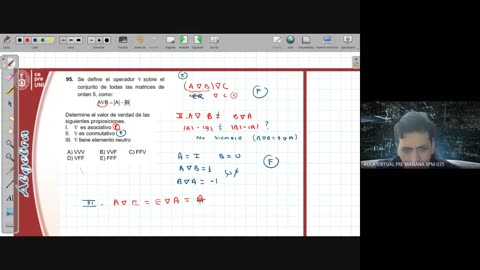 ce
pre
UNI
Álgebra
95. Se define el operador ∇ sobre el
conjunto de todas las matrices de
orden 5, como:
A∇B = |A| − |B|
Determine el valor de verdad de las
siguientes proposiciones.
I. ∇ es asociativo F
II. ∇ es conmutativo F
III. ∇ tiene elemento neutro
A) VVV B) VVF C) FFV
D) VFF E) FFF
(A∇B)∇C
∇ C
F
II. A∇B ≠ B∇A
|A| − |B| ≠ |B| − |A| ?
No siempre (A∇B = B∇A)
A = I B = 0
A∇B = 1
B∇A = −1
F
III. A∇E = E∇A = A
AULA VIRTUAL PRE MAÑANA VPM-035